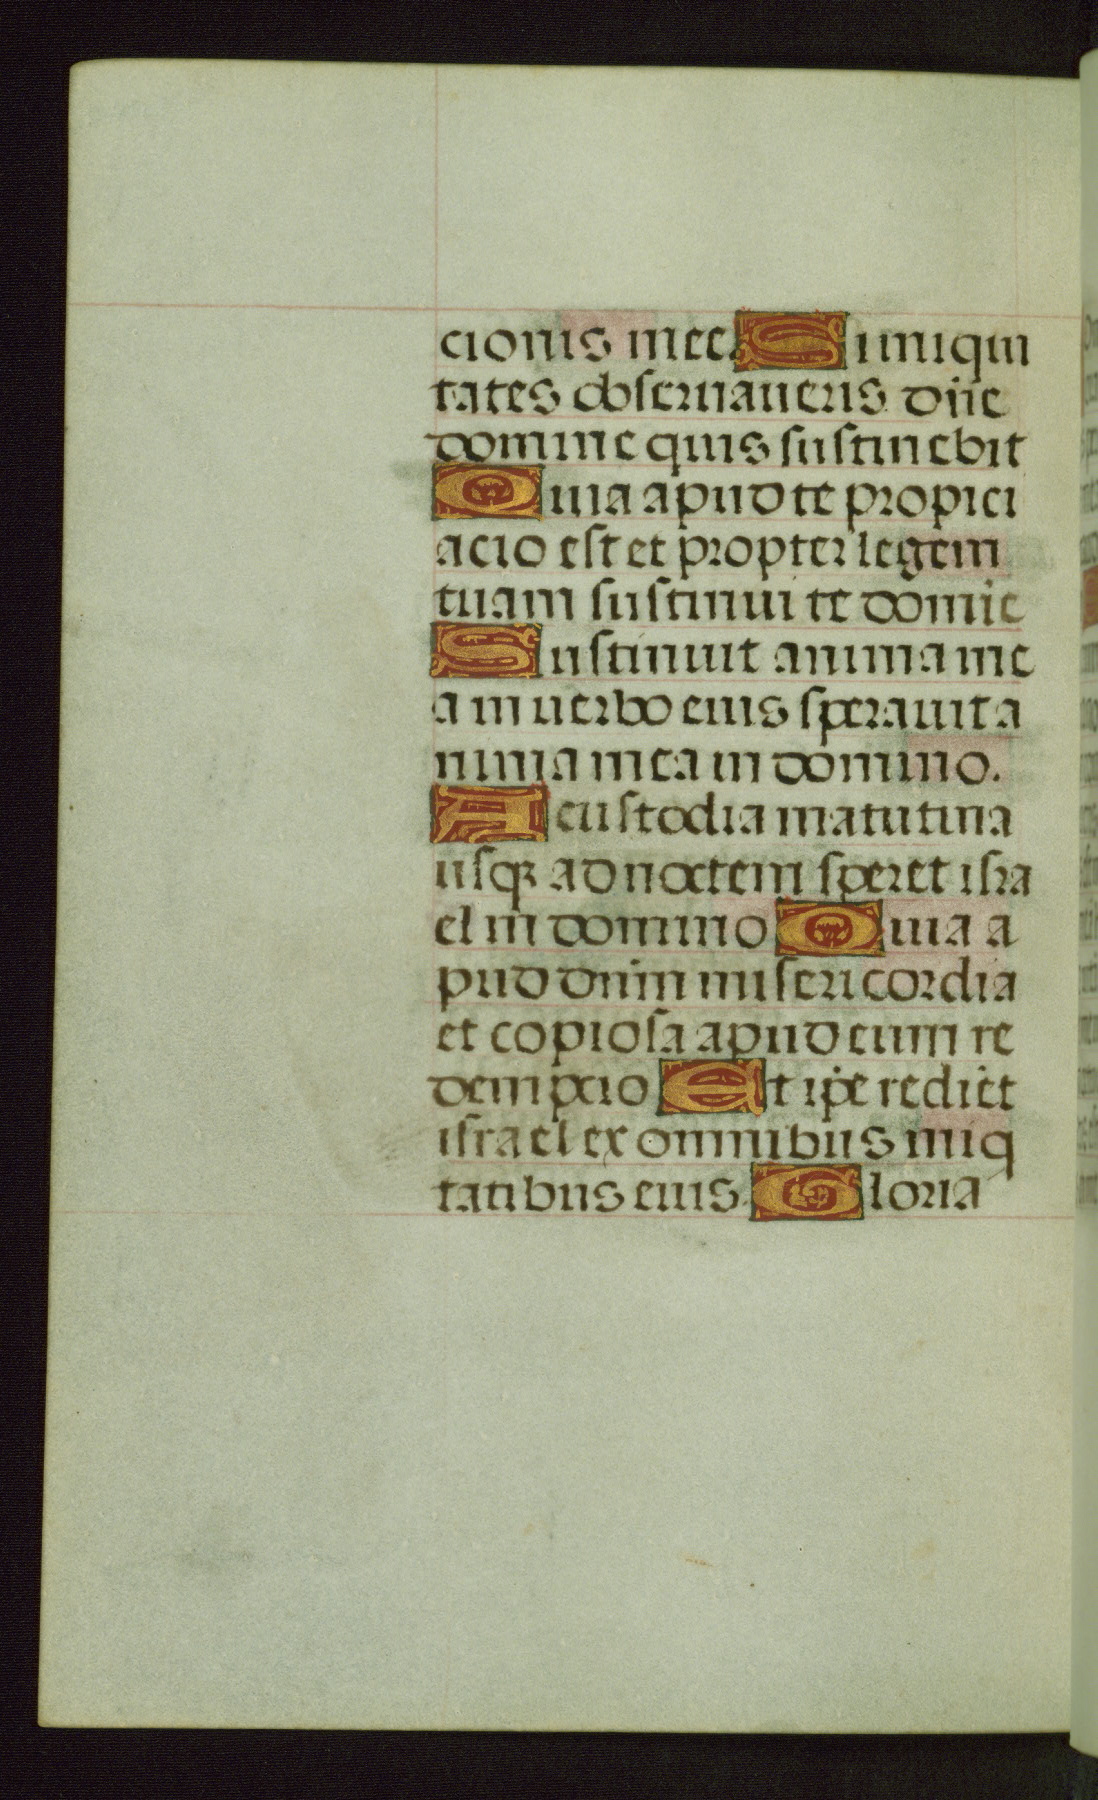 cionis mee. Si iniqui
tates obseruaueris dñe
domine quis sustinebit
Quia apud te propici
acio est et propter legem
tuam sustinui te domie
Sustinuit anima me
a in uerbo eius sperauit a
nima mea in domino.
A custodia matutina
usqȝ ad noctem speret isra
el in domino Quia a
pud dnm misericordia
et copiosa apud eum re
dempcio Et ip̄e rediet
israel ex omnibus iniq
tatibus eius. Gloria